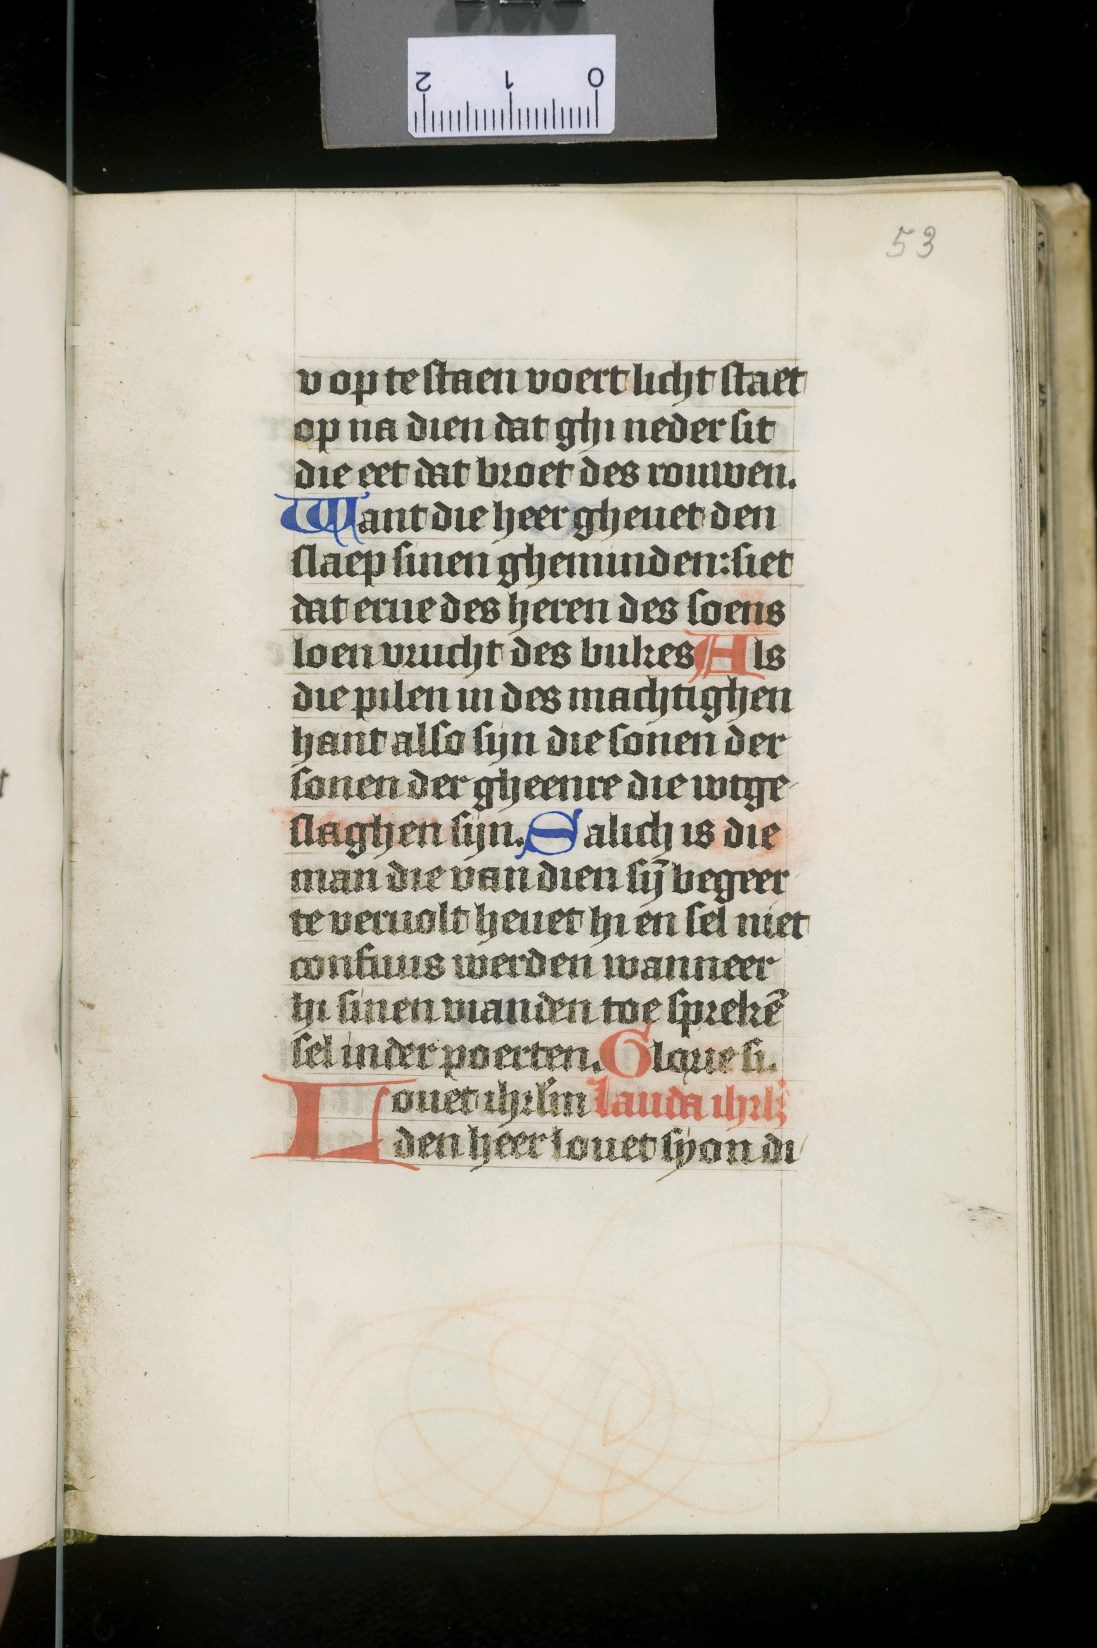 2 1 0
53
v op te staen voert licht staet
op na dien dat ghi neder sit
die eet dat broet des rouwen.
Want die heer gheuet den
slaep sinen gheminden: siet
dat erue des heren des soens
loen vrucht des bukes Als
die pilen in des machtighen
hant also sijn die sonen der
sonen der gheenre die wtge
slaghen sijn. Salich is die
man die van dien sij̄ begeer
te veruolt heuet hi en sel niet
confuus werden wanneer
hi sinen vianden toe sprekē
sel in der poerten. Glorie si.
Louet ihrlm̄ Lauda ihrlm̄
den heer louet syon di